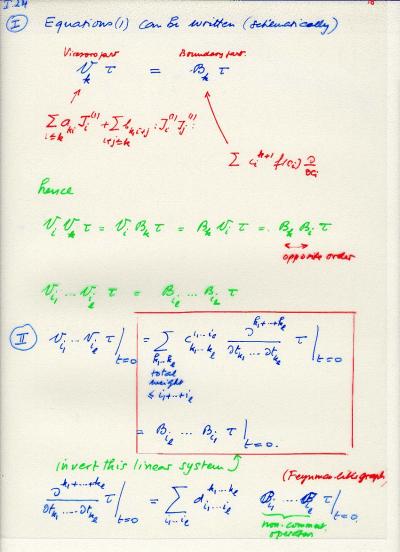 I.24
10
I Equations (1) can be written (schematically)
Virasoro part Boundary part.
𝒱_k τ = B_k τ
Σ_{i≤k} a_{ki} J_i^{(1)} + Σ_{i+j≤k} b_{k,i+j} :J_i^{(1)} J_j^{(1)}:
Σ c_i^{k+1} f(c_i) ∂/∂c_i
hence
𝒱_i 𝒱_k τ = 𝒱_i B_k τ = B_k 𝒱_i τ = B_k B_i τ
opposite order
𝒱_{i_1} ... 𝒱_{i_ℓ} τ = B_{i_ℓ} ... B_{i_1} τ
II 𝒱_{i_1} ... 𝒱_{i_ℓ} τ |_{t=0} = Σ_{k_1...k_ℓ} c^{i_1...i_ℓ}_{k_1...k_ℓ} ∂^{k_1+...+k_ℓ} / ∂t_{k_1} ... ∂t_{k_ℓ} τ |_{t=0}
total
weight
≤ i_1+...+i_ℓ
= B_{i_ℓ} ... B_{i_1} τ |_{t=0}.
invert this linear system
(Feynman-like graph)
∂^{k_1+...+k_ℓ} / ∂t_{k_1} ... ∂t_{k_ℓ} τ |_{t=0} = Σ_{i_1...i_ℓ} d^{k_1...k_ℓ}_{i_1...i_ℓ} B_{i_1} ... B_{i_ℓ} τ |_{t=0}.
non-commut.
operators